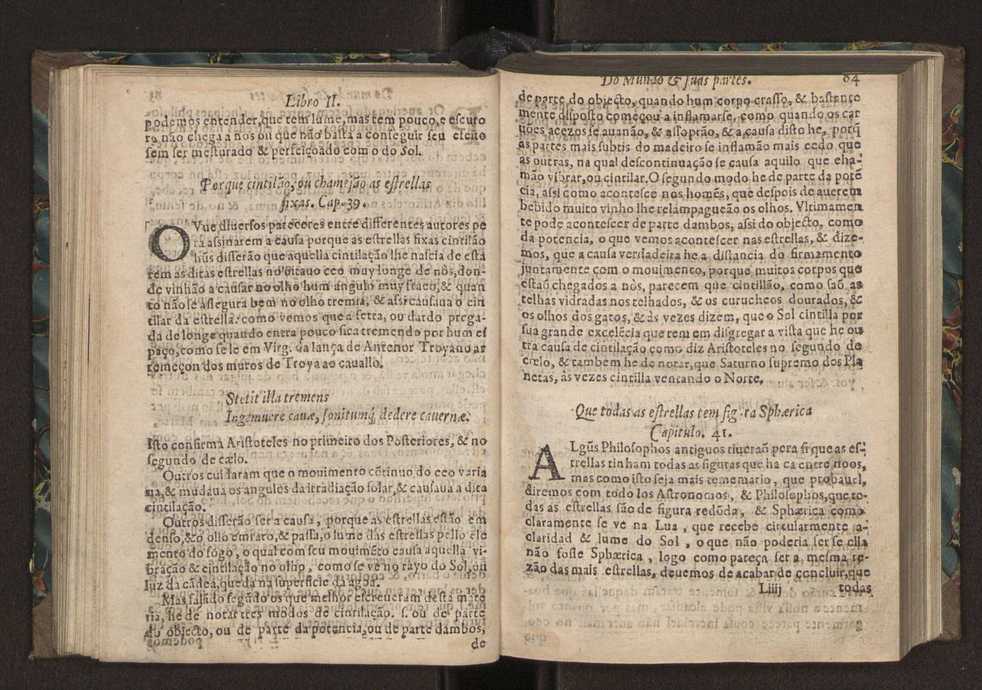 Libro II.
podemos entender, que tem lume, mas tem pouco, e escuro
ro, não chega a nos ou que não basta a conseguir seu efeito
sem ser mesturado & perfeiçoado com o do Sol.
Porque cintilão, ou chamejão as estrellas
fixas. Cap. 39.
OVue diuersos pareceres entre differentes autores pe
ra assinarem a causa porque as estrellas fixas cintilão
hũs disserão que aquella cintilação lhe nascia de esta
rem as ditas estrellas no oitauo ceo muy longe de nòs, don-
de vinhão a causar no olho hum angulo muy fraco, & quan
to não se assegura bem no olho tremia, & assi causaua o cin
tilar da estrella: como vemos que a setta, ou dardo prega-
da de longe quando entra pouco fica tremendo por hum es
paço, como se le em Virg. da lança de Antenor Troyano ar
remeçon dos muros de Troya ao cauallo.
Stetit illa tremens
Ingemuere cauæ, sonitumq́, dedere cauernæ.
Isto confirma Aristoteles no primeiro dos Posteriores, & no
segundo de cælo.
Outros cuidaram que o mouimento cõtinuo do ceo varia
ua, & mudaua os angulos da irradiação solar, & causaua a dita
cintilação.
Outros disserão ser a causa, porque as estrellas estão em
denso, & o olho em raro, & passa, o lume das estrellas pello ele
mento do fogo, o qual com seu mouimẽto causa aquella vi-
bração & cintilação no olho, como se ve no rayo do Sol, ou
luz da cãdea, que da na superficie da agoa.
Mas falãdo segũdo os que melhor escreueram desta mate
ria, he de notar tres modos de cintilação. s. ou de parte
do objecto, ou de parte da potencia, ou de parte dambos,
de
Do Mundo & suas partes. 64
de parte do objecto, quando hum corpo crasso, & bastante
mente disposto começou a inflamarse, como quando os car
uões acezos se auanão, & assoprão, & a causa disto he, porq̃
as partes mais subtis do madeiro se inflamão mais cedo que
as outras, na qual descontinuação se causa aquilo que cha-
mão vibrar, ou cintilar. O segundo modo he de parte da potẽ
cia, assi como acontesce nos homẽs, que despois de auerem
bebido muito vinho lhe relampagueão os olhos. Vltimamen
te pode acontescer de parte dambos, assi do objecto, como
da potencia, o que vemos acontescer nas estrellas, & dize-
mos, que a causa verdadeira he a distancia do firmamento
juntamente com o mouimento, porque muitos corpos que
estaõ chegados a nòs, parecem que cintillão, como saõ as
telhas vidradas nos telhados, & os curucheos dourados, &
os olhos dos gatos, & às vezes dizem, que o Sol cintilla por
sua grande excelẽcia que tem em disgregar a vista que he ou
tra causa de cintilação como diz Aristoteles no segundo de
cælo, & tambem he de notar, que Saturno supremo dos Pla
netas, às vezes cintilla ventando o Norte.
Que todas as estrellas tem figura Sphærica
Capitulo. 41.
ALgũs Philosophos antiguos tiueraõ pera si que as es-
trellas tinham todas as figuras que ha ca entre nòs,
mas como isto seja mais temerario, que prouauel,
diremos com todo los Astronomos, & Philosophos, que to-
das as estrellas são de figura redõda, & Sphærica como
claramente se ve na Lua, que recebe circularmente a
claridad & lume do Sol, o que não poderia ser se ella
não fosse Sphærica, logo como pareça ser a mesma re-
zão das mais estrellas, deuemos de acabar de concluir, que
Liiij todas